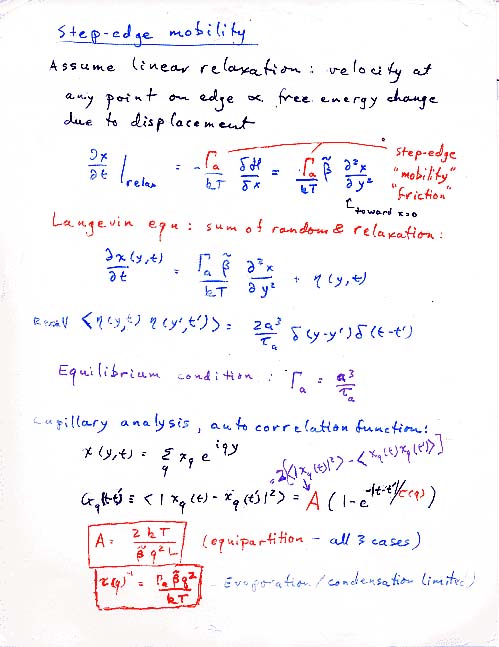 Step-edge mobility
Assume linear relaxation: velocity at
any point on edge ∝ free energy change
due to displacement
∂x/∂t |relax = - Γa/kT δH/δx = Γa/kT β̃ ∂²x/∂y²
step-edge
"mobility"
"friction"
↑ toward x=0
Langevin eqn: sum of random & relaxation:
∂x(y,t)/∂t = Γa β̃/kT ∂²x/∂y² + η(y,t)
Recall <η(y,t) η(y',t')> = 2a³/τa δ(y-y') δ(t-t')
Equilibrium condition: Γa = a³/τa
Capillary analysis, autocorrelation function:
x(y,t) = Σq xq e^iqy
= 2[<|xq(t)|²> - <xq(t)xq(t')>]
Gq(t-t') ≡ <|xq(t) - xq(t')|²> = A (1 - e^-|t-t'|/τ(q))
A = 2kT/β̃q²L (equipartition - all 3 cases)
τ(q)⁻¹ = Γa β̃q²/kT - Evaporation/condensation limited)